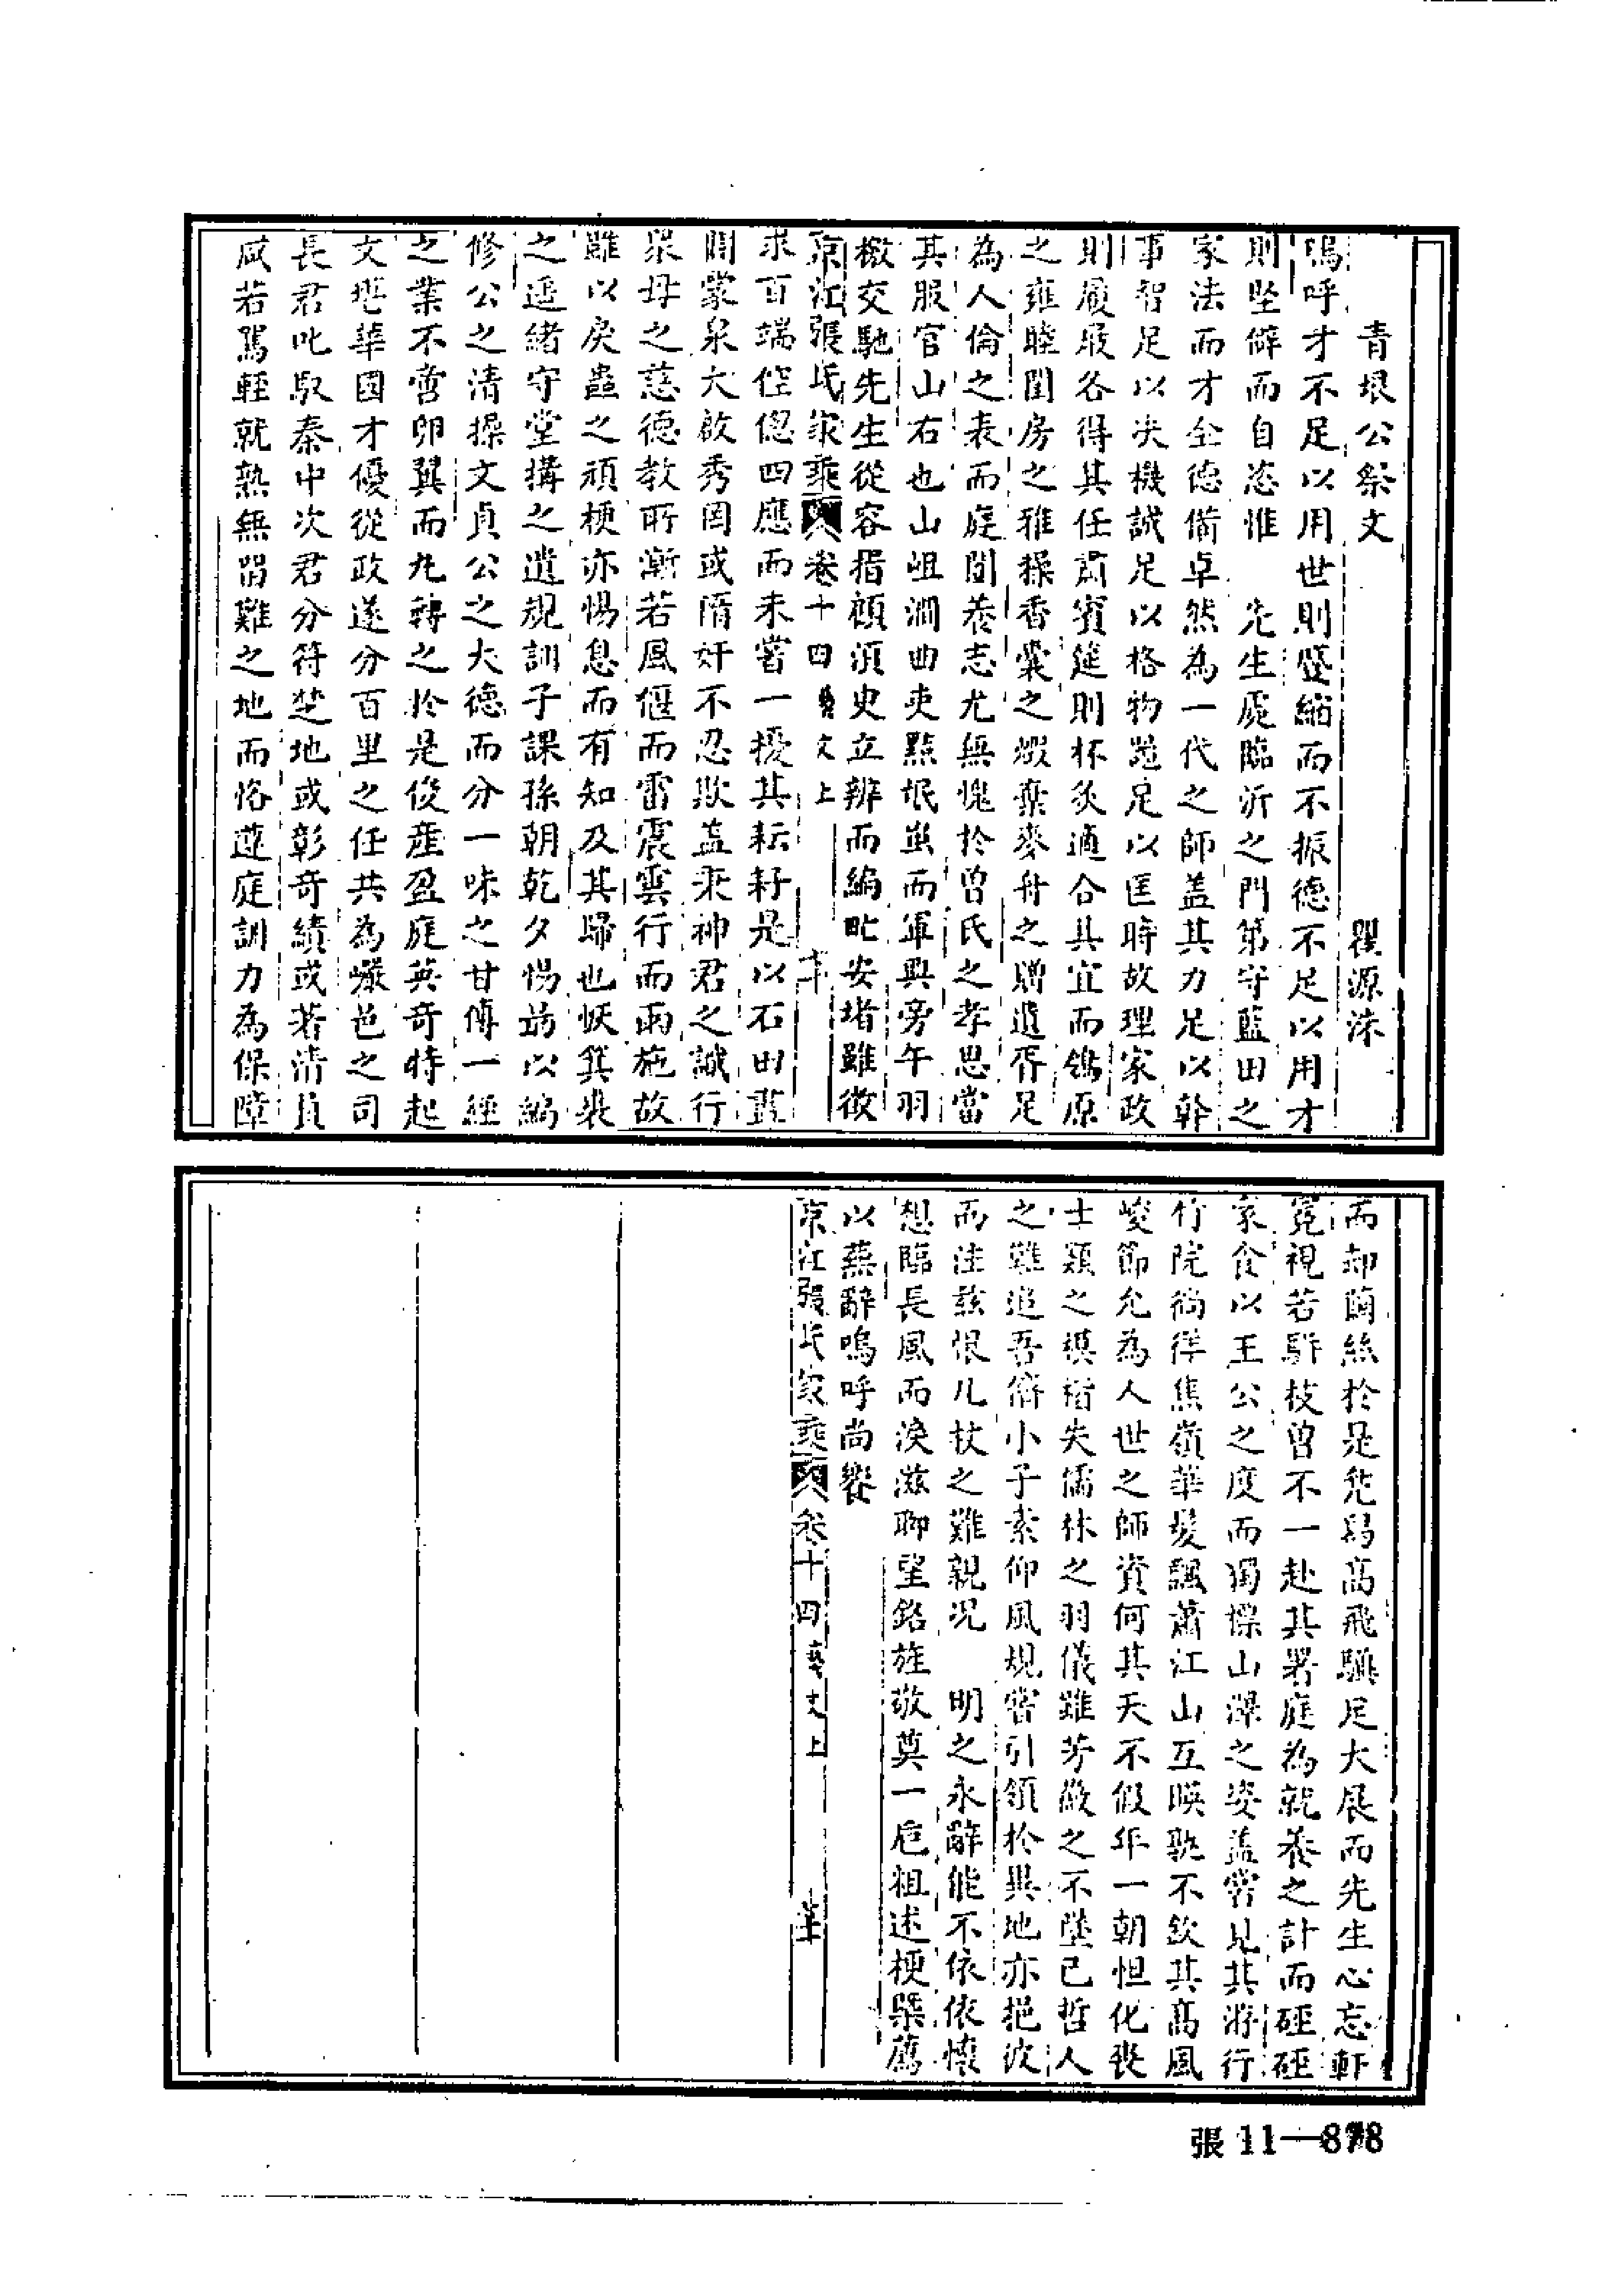 青垠公祭文　　　瞿源洙
嗚呼才不足以用世則蹙縮而不振德不足以用才
則坠僻而自恣惟　先生處臨沂之門第守藍田之
家法而才全德備卓然為一代之師盖其力足以幹
事智足以决機誠足以格物望足以匡時故理家政
則履屐各得其任肅賓筵則杯炙適合其宜而鴒原
之雍睦閨房之雅操香囊之燬棄麥舟之贈遺胥足
為人倫之表而庭闈养志尤無愧於曾氏之孝思當
其服官山右也山岨澗曲吏黠氓蚩而軍興旁午羽
檄交馳先生從容指顧須臾立辨而編甿安堵雖徵
京江張氏家乘卷十四藝文上
求百端倥偬四應而未嘗一擾其耘耔是以石田藍
開蒙泉大啟秀罔或隋奸不忍欺盖秉神君之誠行
衆母之慈德教所漸若風偃而雷震雲行而雨施故
雖以戾蟲之頑梗亦惕息而有知及其歸也恢箕裘
之遥緒守堂搆之遺規訓子課孫朝乾夕惕訪以編
修公之清操文貞公之大德而分一味之甘傳一經
之業不啻卵翼而九轉之於是俊產盈庭英奇特起
文堪華國才優從政遂分百里之任共為嚴邑之司
長君叱馭秦中次君分符楚地或彰奇績或若清貞
咸若駕輕就熟無畱難之地而恪遵庭訓力為保障
而却繭絲於是凫舄高飛驥足大展而先生心忘軒
冕視若駢枝曾不一赴其署庭為就养之計而硜硜
家食以王公之度而獨懷山澤之姿盖嘗見其游行
竹院徜徉焦嶺華髮飄蕭江山互暎孰不欽其高風
峻節允為人世之師資何其天不假年一朝怛化喪
士類之模楷失儒林之羽儀雖芳徽之不墜已哲人
之難追吾儕小子素仰風規嘗引領於異地亦挹波
而注兹恨几杖之難親况　明之永辭能不依依懷
想臨長風而涣滋聊望銘旌敬奠一巵粗述梗槩薦
以蕪辭嗚呼尚饗
京江張氏家乘卷十四藝文上
張 11—878